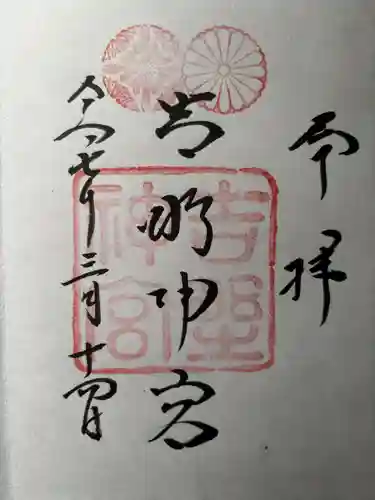 奉拝
吉野神宮
吉野神宮
令和七年三月十四日